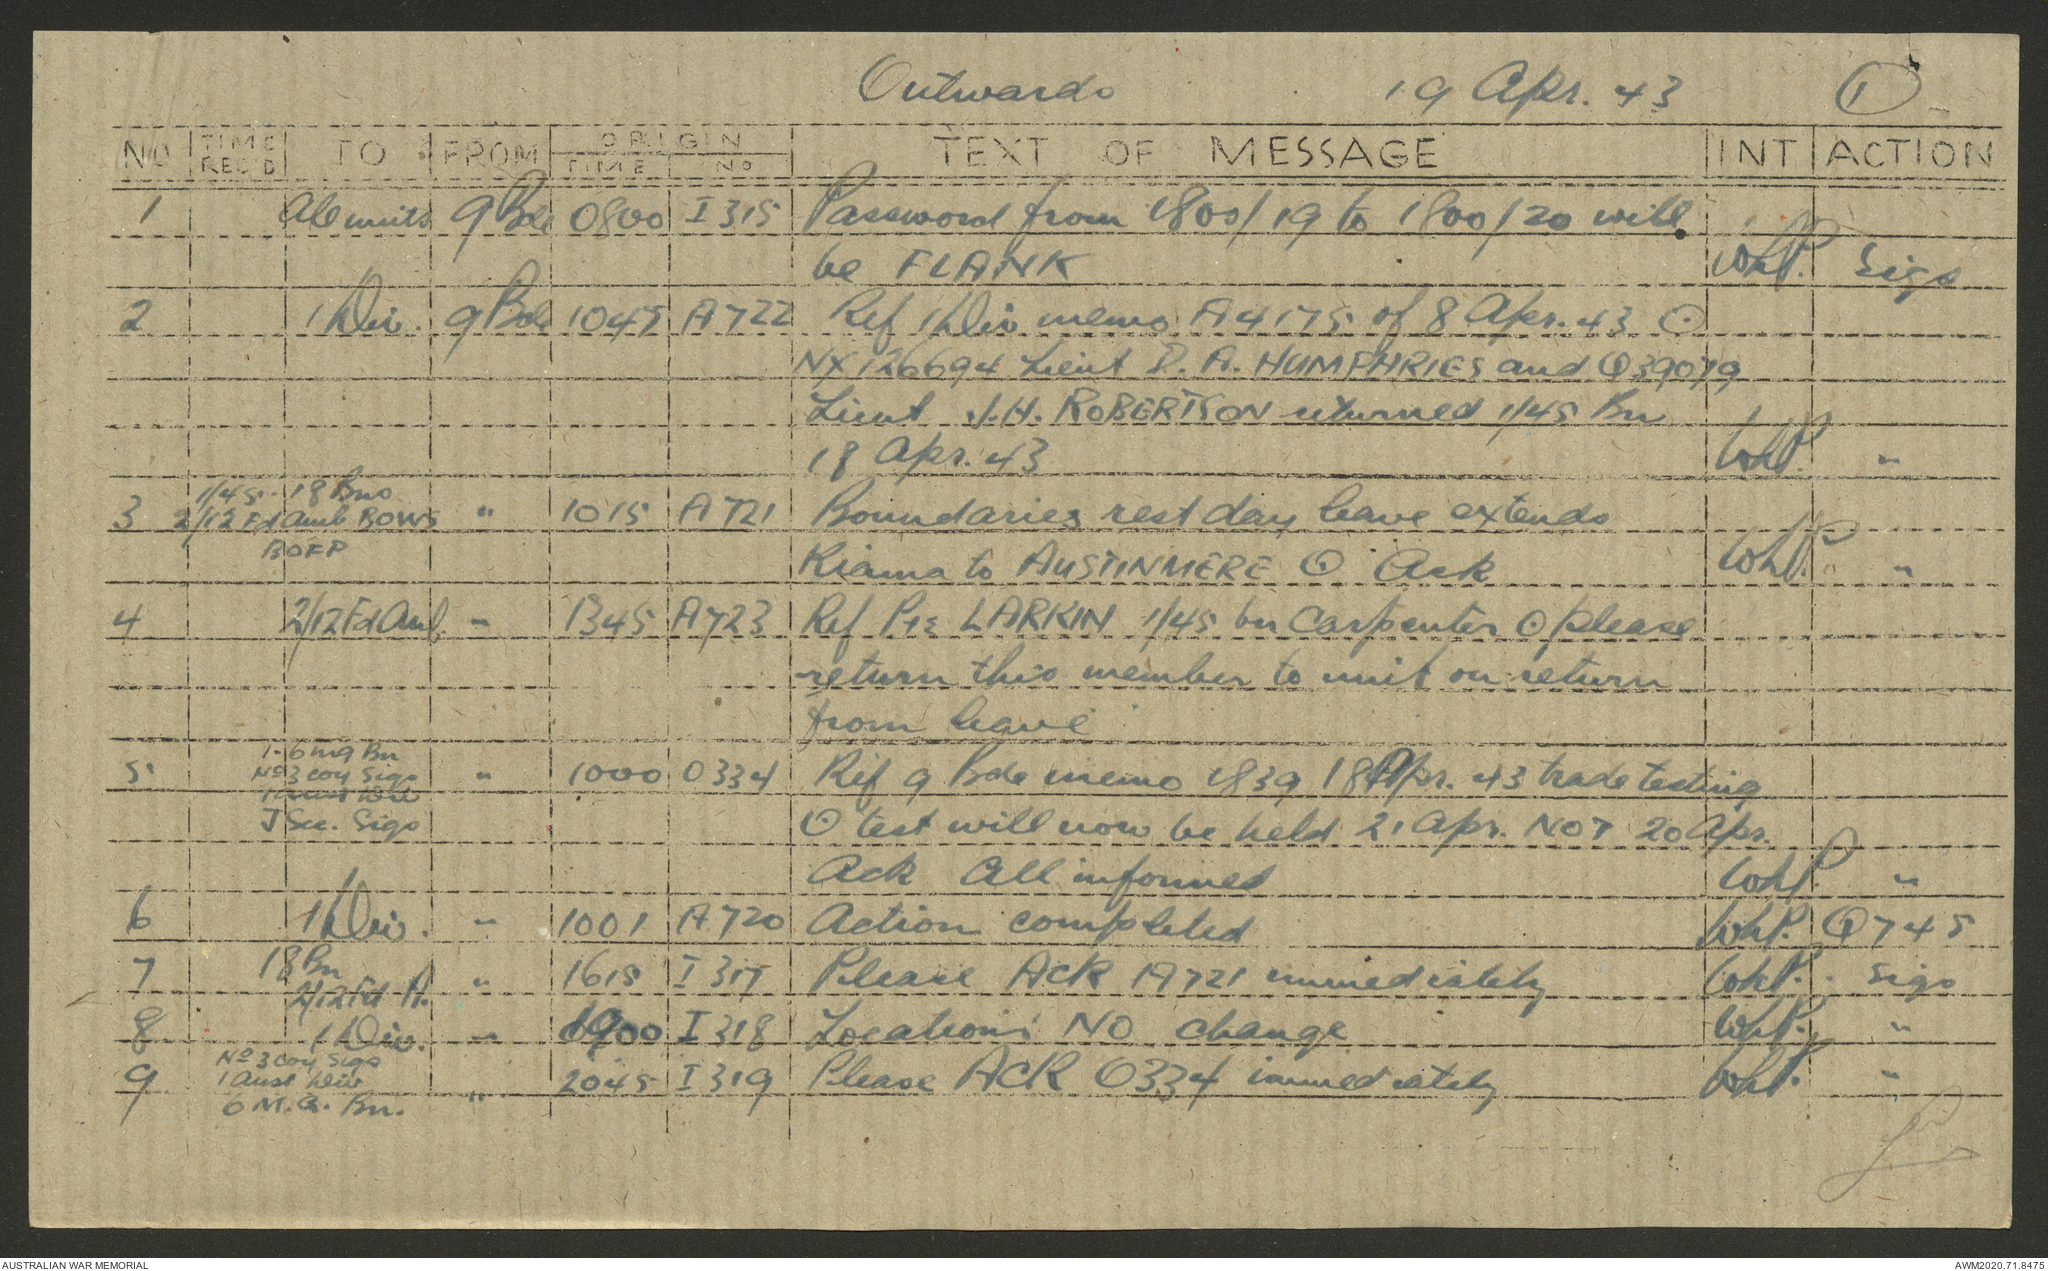 Outwards 19 Apr. 43 1
NO TIME REC'D TO FROM ORIGIN TIME No TEXT OF MESSAGE INT ACTION
1 All units 9 Bde 0800 I 315 Password from 1800/19 to 1800/20 will
be FLANK WhP. Sigs
2 1 Div. 9 Bde 1045 A722 Ref 1 Div memo A4175 of 8 Apr. 43 ⊙
NX126694 Lieut D. A. HUMPHRIES and Q39079
Lieut J.H. ROBERTSON returned 1/45 Bn
18 Apr. 43 WhP. "
1/45 - 18 Bns
3 2/12 Fd Amb BOWS " 1015 A721 Boundaries rest day leave extends
BOFP
Kiama to AUSTINMERE ⊙ Ack WhP. "
4 2/12 Fd Amb. " 1345 A723 Ref Pte LARKIN 1/45 bn Carpenter ⊙ please
return this member to unit on return
from leave
1-6 mg Bn
5 No 3 coy Sigs " 1000 O334 Ref 9 Bde memo 1839 18 Apr. 43 trade testing
1 Aust Div
J Sec. Sigs ⊙ test will now be held 21 Apr. NOT 20 Apr.
Ack All informed WhP. "
6 1 Div. " 1001 A720 Action completed WhP. Q745
7 18 Bn " 1615 I 317 Please ACK A721 immediately WhP. Sigs
2/12 Fd A.
8 1 Div. " 1900 I 318 Locations NO change WhP. "
No 3 coy Sigs
9 1 Aust Div " 2045 I 319 Please ACK O334 immediately WhP. "
6 M.G. Bn.
AUSTRALIAN WAR MEMORIAL AWM2020.71.8475